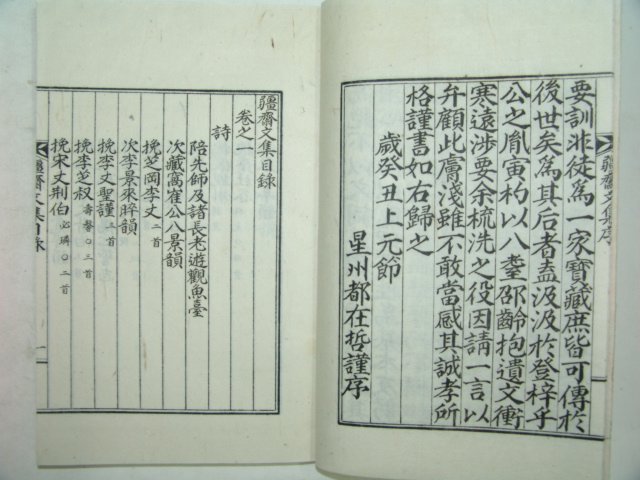 要訓非徒為一家寶藏庶皆可傳於
後世矣為其后者盍汲汲於登梓乎
公之胤寅杓以八耋邵齡抱遺文衝
寒遠涉要余梳洗之役因請一言以
弁顧此膚淺雖不敢當感其誠孝所
格謹書如右歸之
歲癸丑上元節
星州都在哲謹序
疆齋文集序
疆齋文集目錄
卷之一
詩
陪先師及諸長老遊觀魚臺
次藏窩崔公八景韻
挽芝岡李丈二首
次李景來睟韻
挽李丈聖謹三首
挽李芝叔壽馨○三首
挽宋丈荊伯必璘○二首
疆齋文集目錄
一